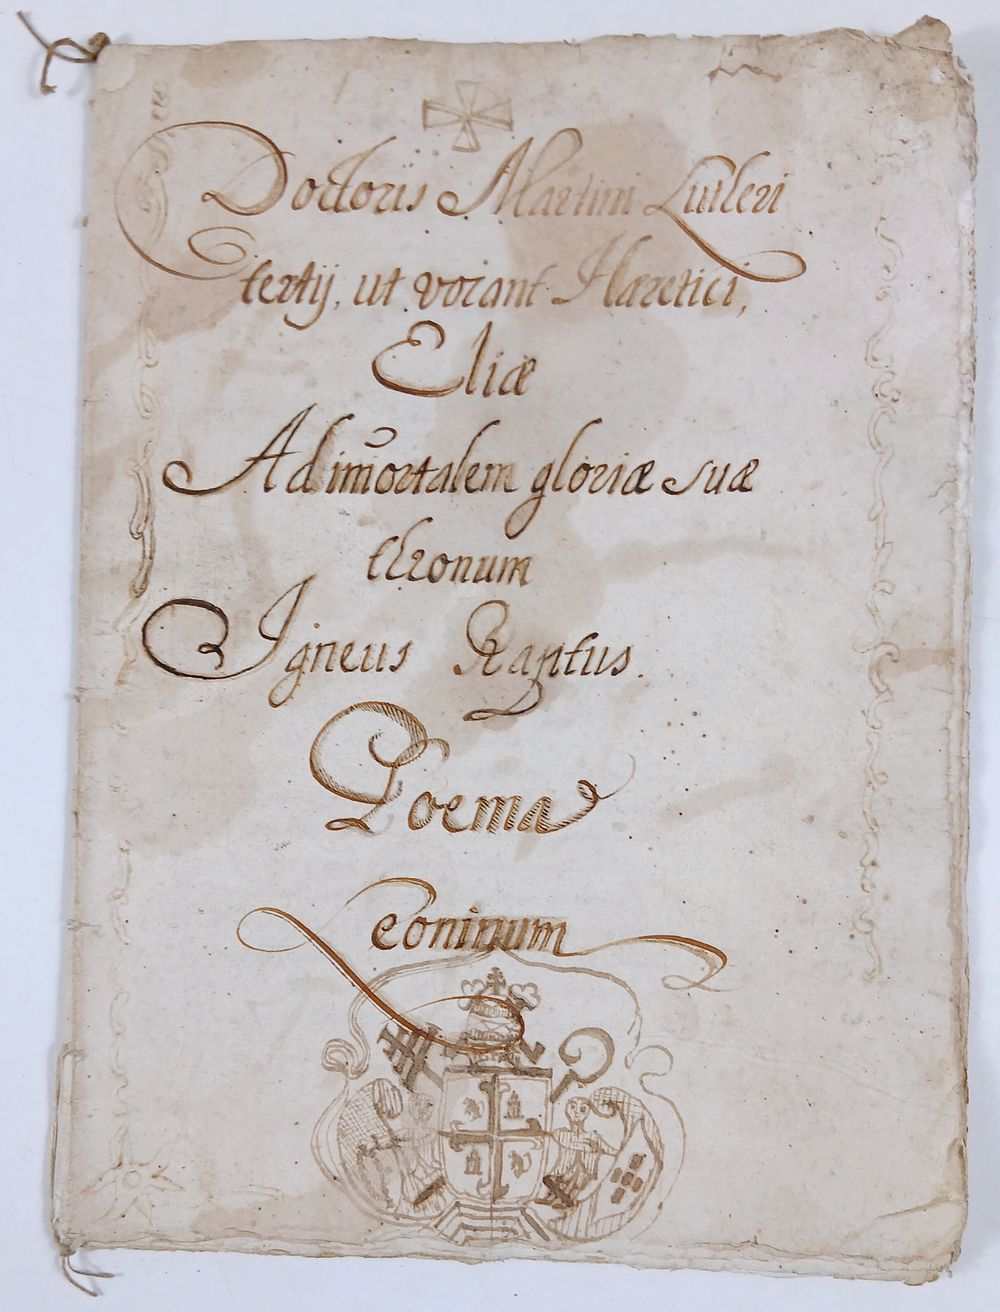 Doctoris Martini Lutleri
tertij, ut vocant Hæretici,
Eliæ
Ad im̄ortalem gloriæ suæ
thronum
Igneus Raptus.
Poema
Leoninum